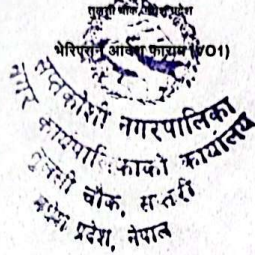 तुलसी चोक, मधेश प्रदेश
भेरिएशन आदेश फाराम (VO1)
सप्तकोशी नगरपालिका
नगर कार्यपालिकाको कार्यालय
चोक, सप्तरी
मधेश प्रदेश, नेपाल